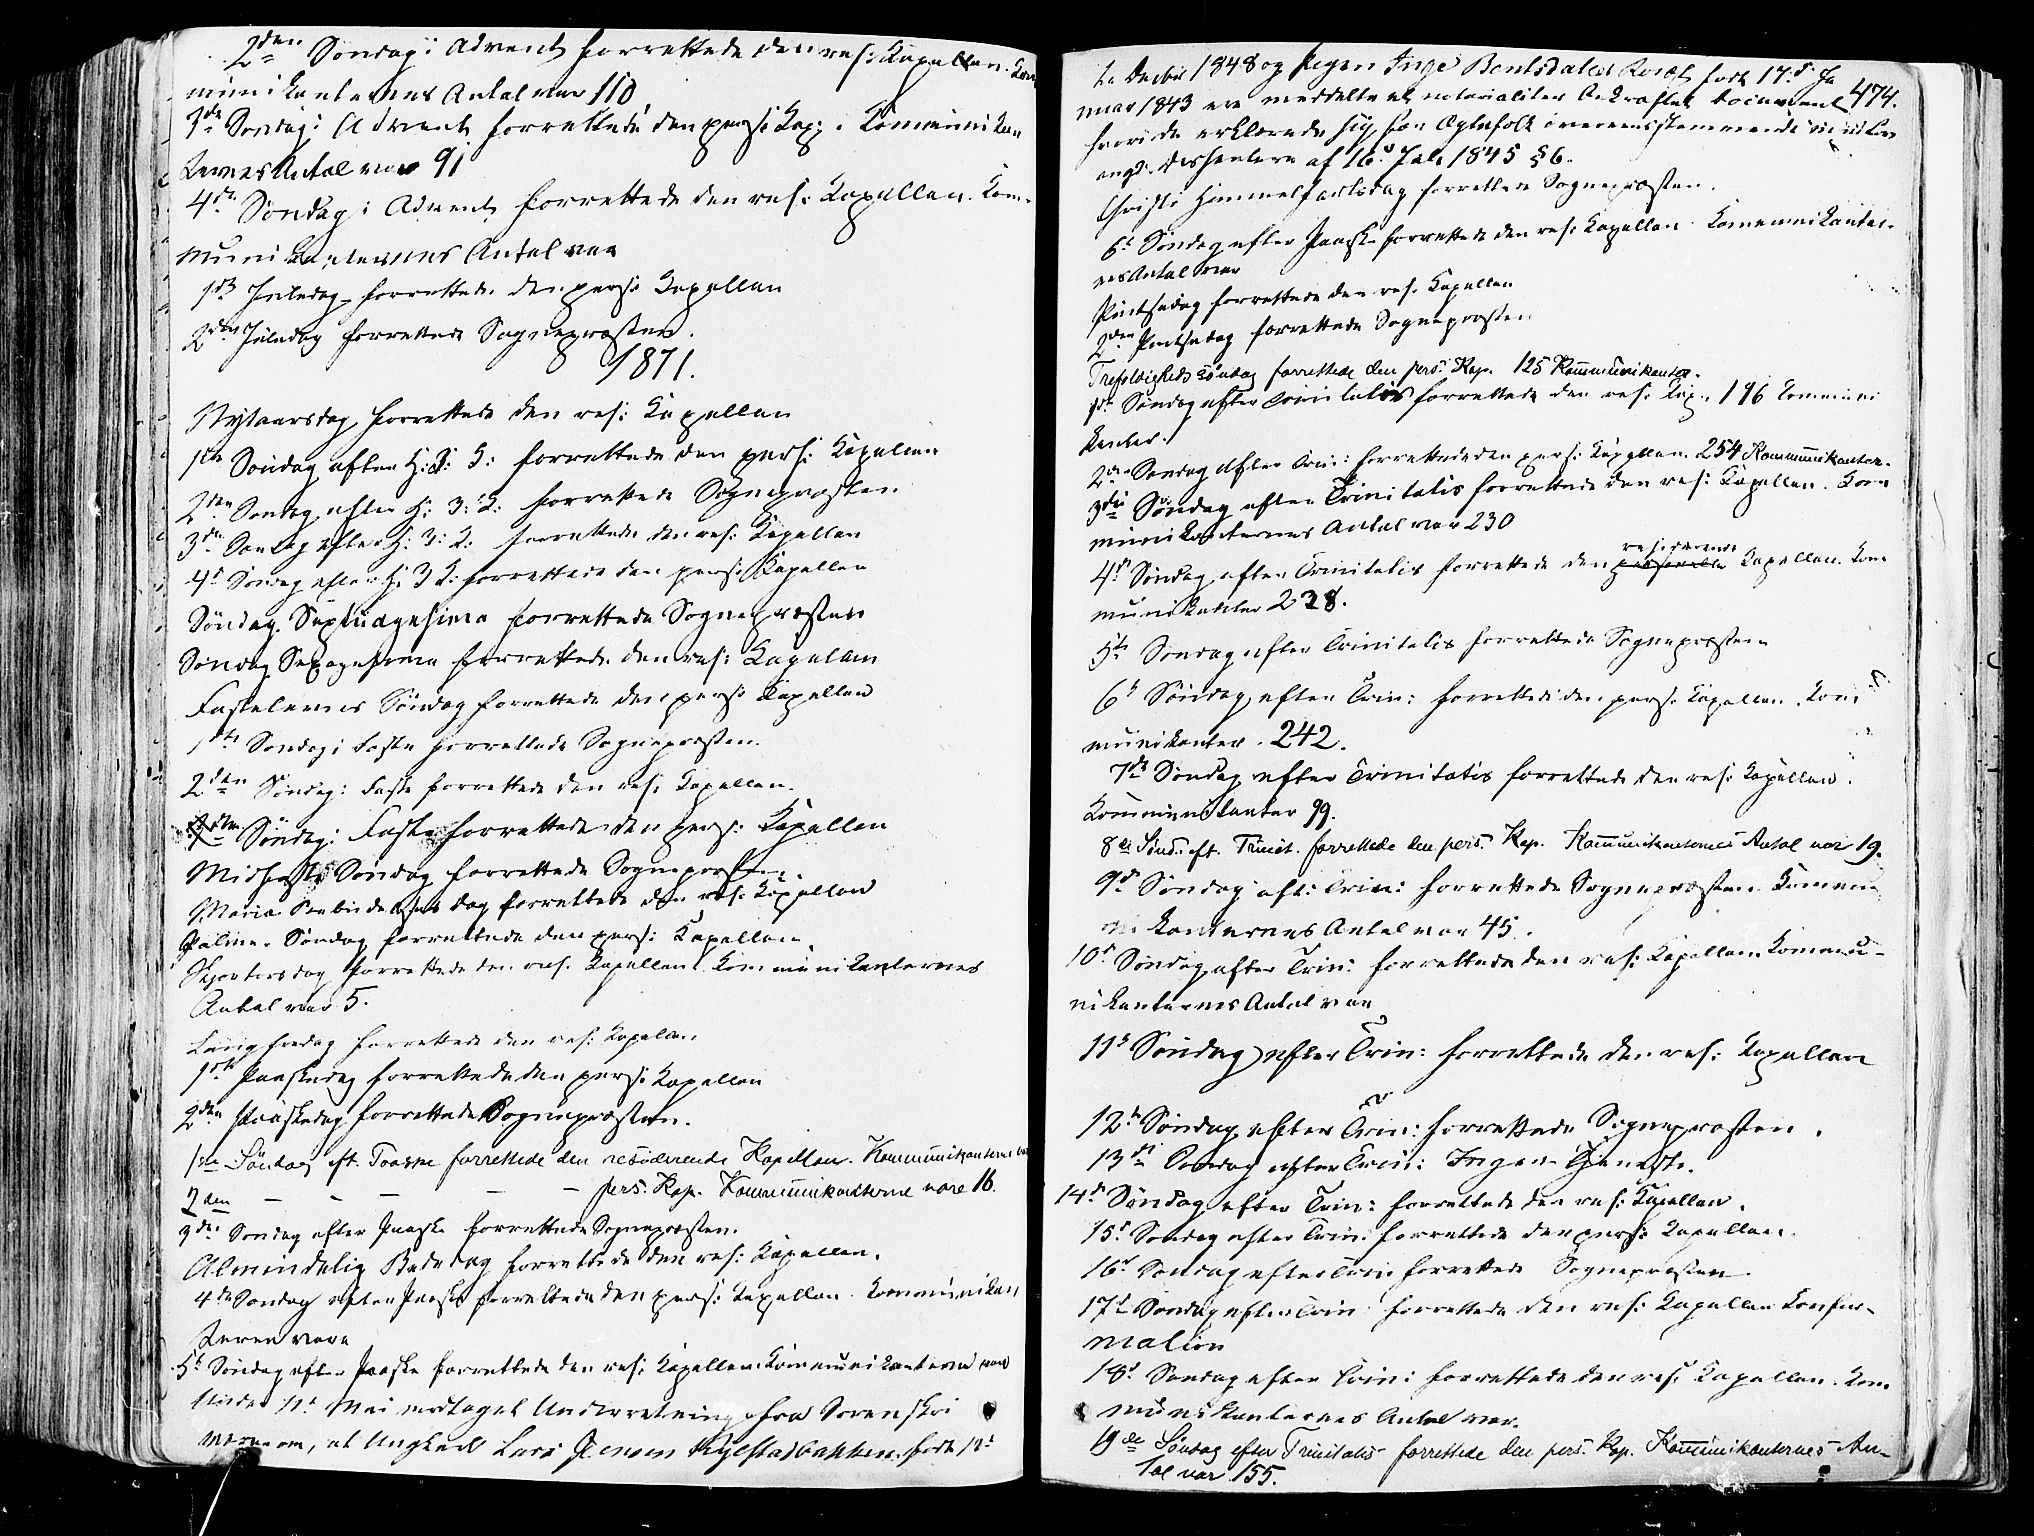 2den Søndag i Advent forrettede den res: Kapellan. Kom
munikanternes Antal var 110
3die Søndag i Advent forrettede den pers: Kap: Kommunikan
ternes Antal var 91
4de Søndag i Advent forrettede den res: Kapellan. Kom-
munikanternes Antal var
1ste Juledag forrettede den pers: Kapellan
2den Juledag forrettede Sognepræsten.
1871.
Nytaarsdag forrettede den res: Kapellan
1ste Søndag efter H: 3: K: forrettede den pers: Kapellan
2den Søndag efter H: 3: K: forrettede Sognepræsten
3die Søndag efter H: 3: K: forrettede den res: Kapellan
4de Søndag efter H: 3 K: forrettede den pers: Kapellan
Søndag Septuagesima forrettede Sognepræsten
Søndag Sexagesima forrettede den res: Kapellan
Fastelavns Søndag forrettede den pers: Kapellan
1ste Søndag i Faste forrettede Sognepræsten.
2den Søndag i Faste forrettede den res: Kapellan.
Søndag i Faste forrettede den pers: Kapellan
Midfaste Søndag forrettede Sognepræsten.
Maria Bebudelses dag forrettede den res: Kapellan
Palme-Søndag forrettede den pers: Kapellan.
Skjærtorsdag forrettede den res. Kapellan. Kommunikanternes
Antal var 5.
Langfredag forrettede den res: Kapellan
1ste Paaskedag forrettede den pers: Kapellan
2den Paaskedag forrettede Sognepræsten.
1ste Søndag eft. Paaske forrettede den residerende Kapellan. Kommunikanterne
2den — — — — — pers. Kap. Kommunikanterne vare 16.
3die Søndag efter Paaske forrettede Sognepræsten.
Almindelig Bededag forrettede den res: Kapellan.
4de Søndag efter Paaske forrettede den pers: Kapellan. Kommunikan
terne vare
5te Søndag efter Paaske forrettede den res: Kapellan. Kommunikanterne vare
Under 11te Mai modtaget Underretning fra Sorenskri
veren om, at Ungkarl Lars Jensen født 12te
474.
1848 og Pigen Inge født 17de Ja
nuar 1843 ere meddelte et notarialiter bekræftet Document
hvori de erklærede sig for Ægtefolk overensstemmende med Lov
angd. Dissentere af 16de Juli 1845 § 6.
Christi Himmelfartsdag forrettede Sognepræsten.
6te Søndag efter Paaske forrettede den res: Kapellan. Kommunikanter-
nes Antal var
Pintsedag forrettede den res. Kapellan
2den Pintsedag forrettede Sognepræsten
Trefoldigheds søndag forrettede den pers. Kap. 125 Kommunikanter.
1ste Søndag efter Trinitatis forrettede den res: Kap. 196 Kommuni
kanter.
2den Søndag efter Trin: forrettede den pers: Kapellan. 254 Kommunikanter.
3die Søndag efter Trinitatis forrettede den res: Kapellan. Kom
munikanternes Antal var 230
4de Søndag efter Trinitatis forrettede den personelle residerende Kapellan. Kom
munikanter 238.
5te Søndag efter Trinitatis forrettede Sognepræsten
6te Søndag efter Trin: forrettede den pers: Kapellan. Kom
munikanter 242.
7de Søndag efter Trinitatis forrettede den res: Kapellan.
Kommunikanter 99.
8de Sønd. eft. Trinit. forrettede den pers. Kap. Kommunikanternes Antal var 19.
9de Søndag eft: Trin: forrettede Sognepræsten. Kommu
nikanternes Antal var 45.
10de Søndag efter Trin: forrettede den res: Kapellan. Kommu-
nikanternes Antal var
11te Søndag efter Trin: forrettede den res: Kapellan
12te Søndag efter Trin: forrettede Sognepræsten.
13de Søndag efter Trin: Ingen Tjeneste.
14de Søndag efter Trin: forrettede den res: Kapellan.
15de Søndag efter Trin: forrettede den pers: Kapellan.
16de Søndag efter Trin forrettede Sognepræsten
17de Søndag efter Trin: forrettede den res: Kapellan Konfir-
mation
18de Søndag efter Trin: forrettede den res: Kapellan. Kom
munikanternes Antal var.
19de Søndag efter Trinitatis forrettede den pers. Kap. Kommunikanternes An-
tal var 155.